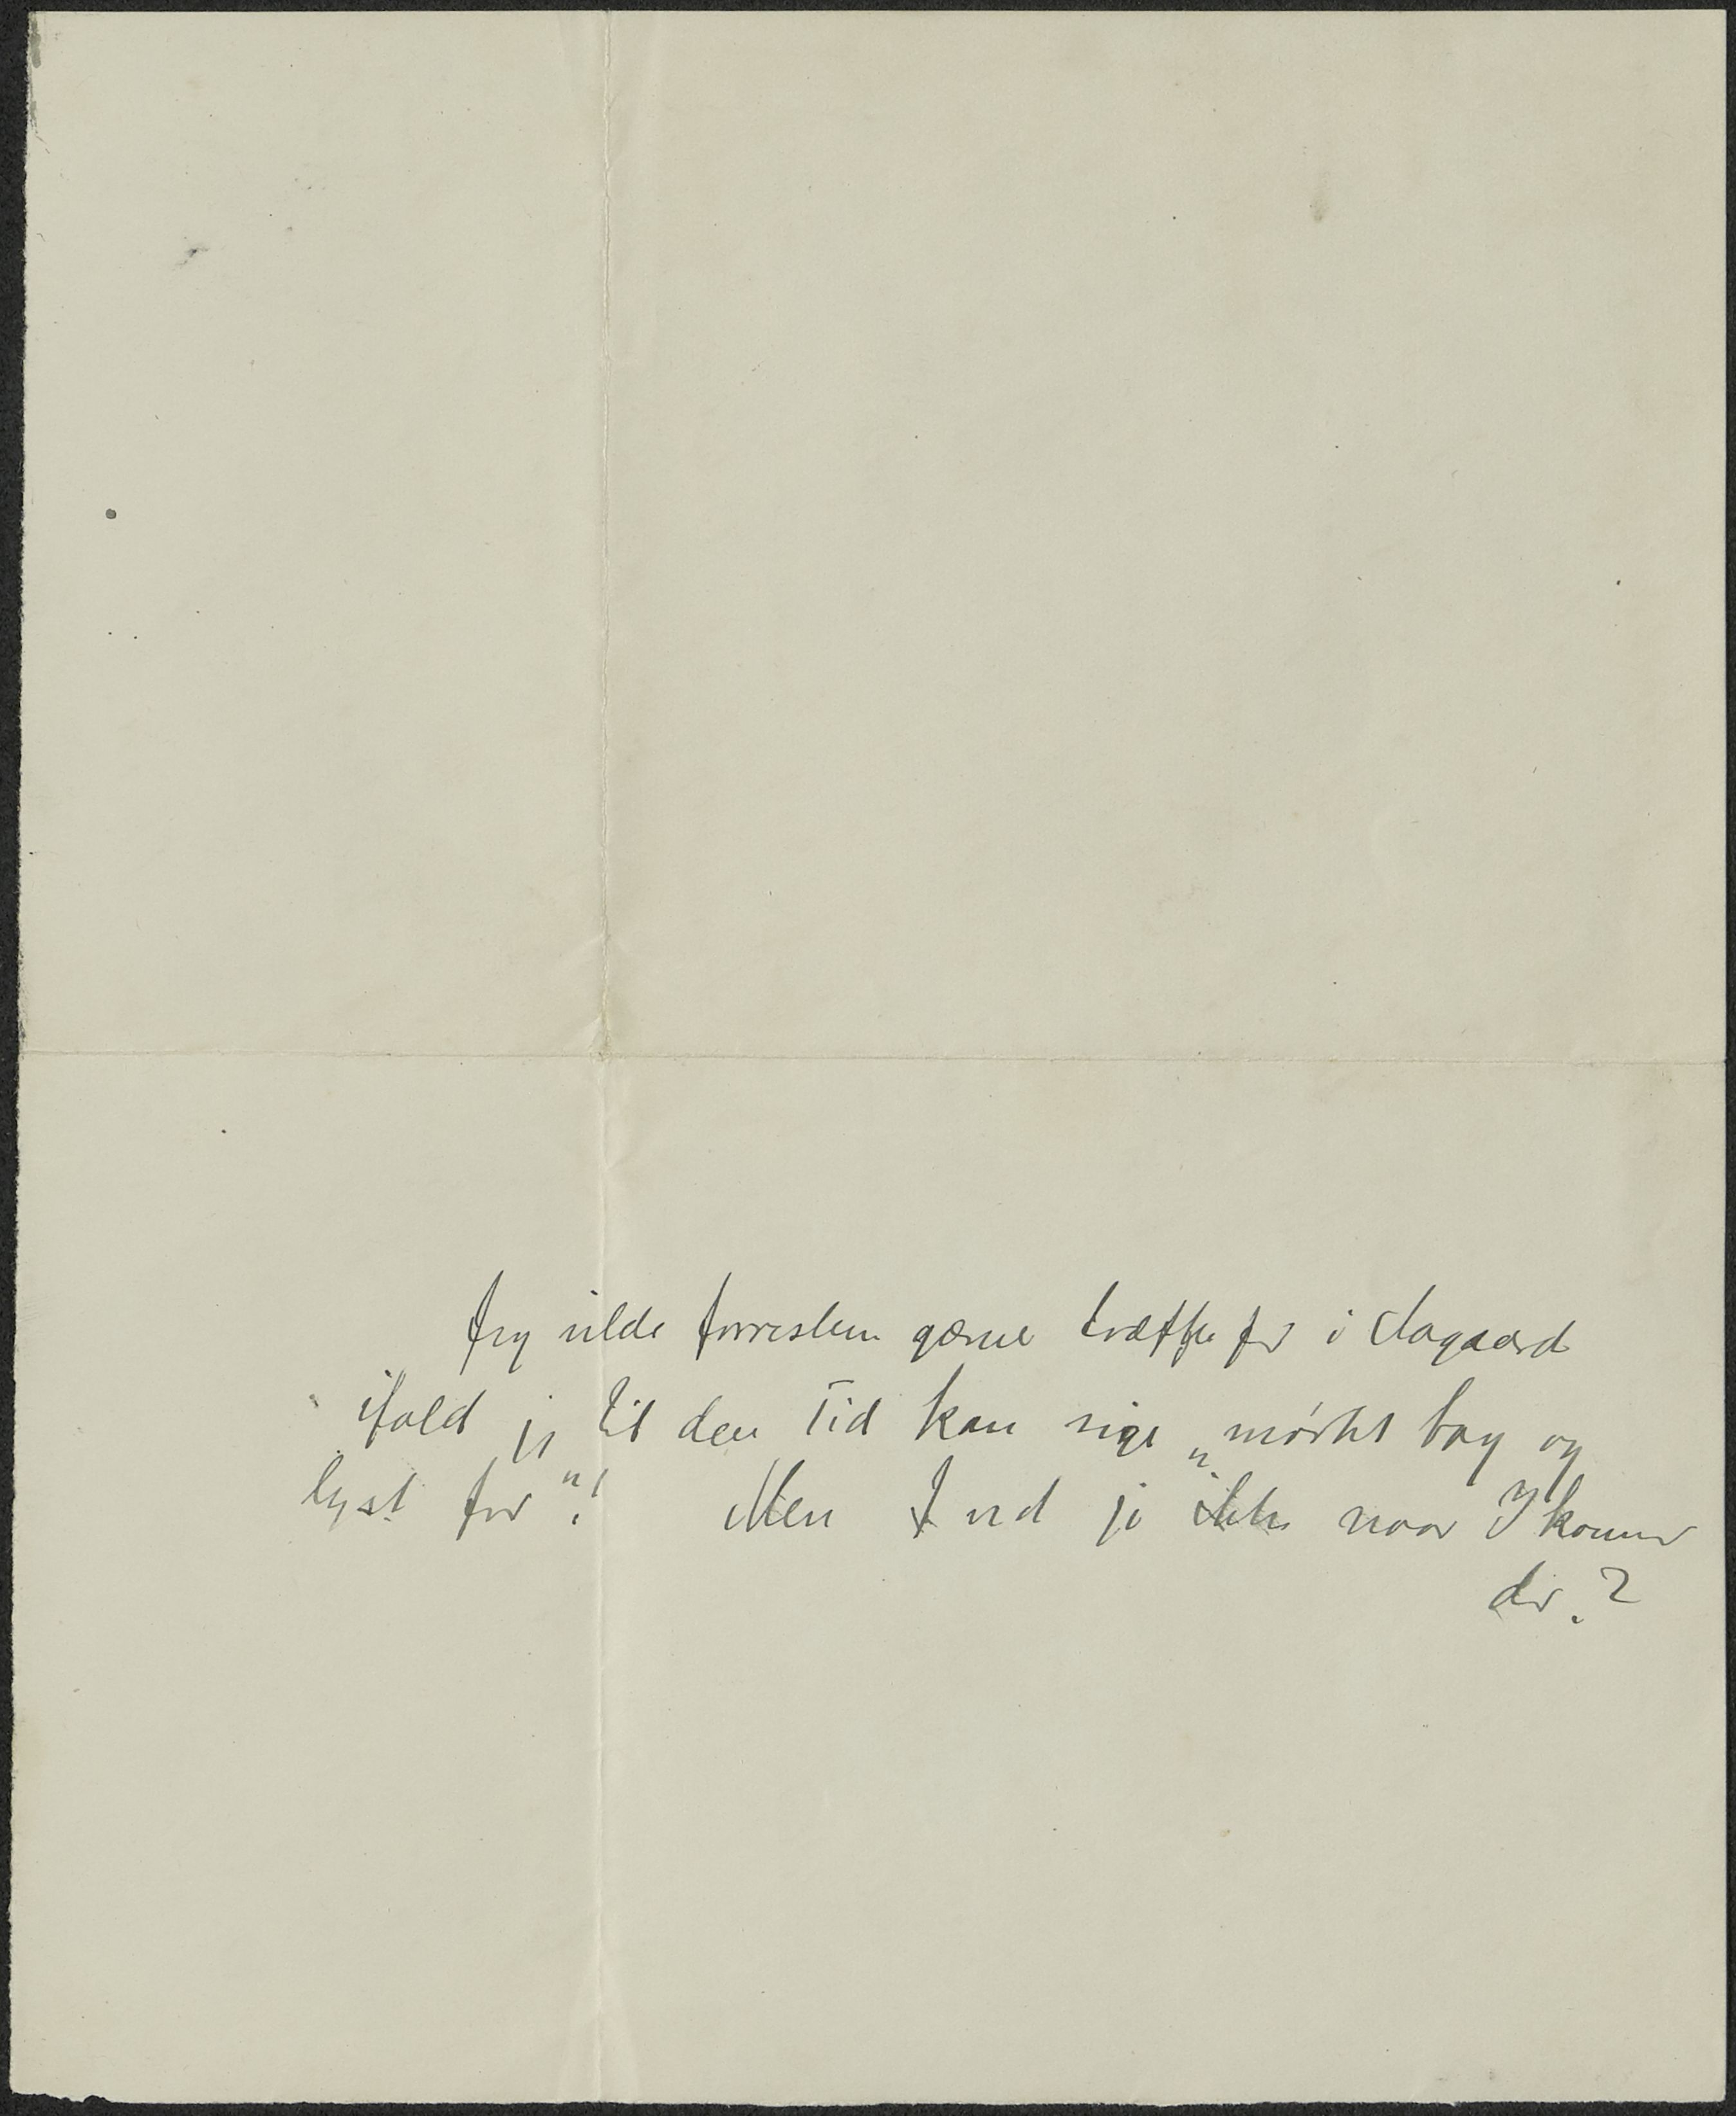 Jeg vilde forresten gærne træffe jer i Aagaard
ifald jeg til den Tid kan sige „mørkt bag og
lyst for"! Men I ved jo ikke naar I kommer
der.?